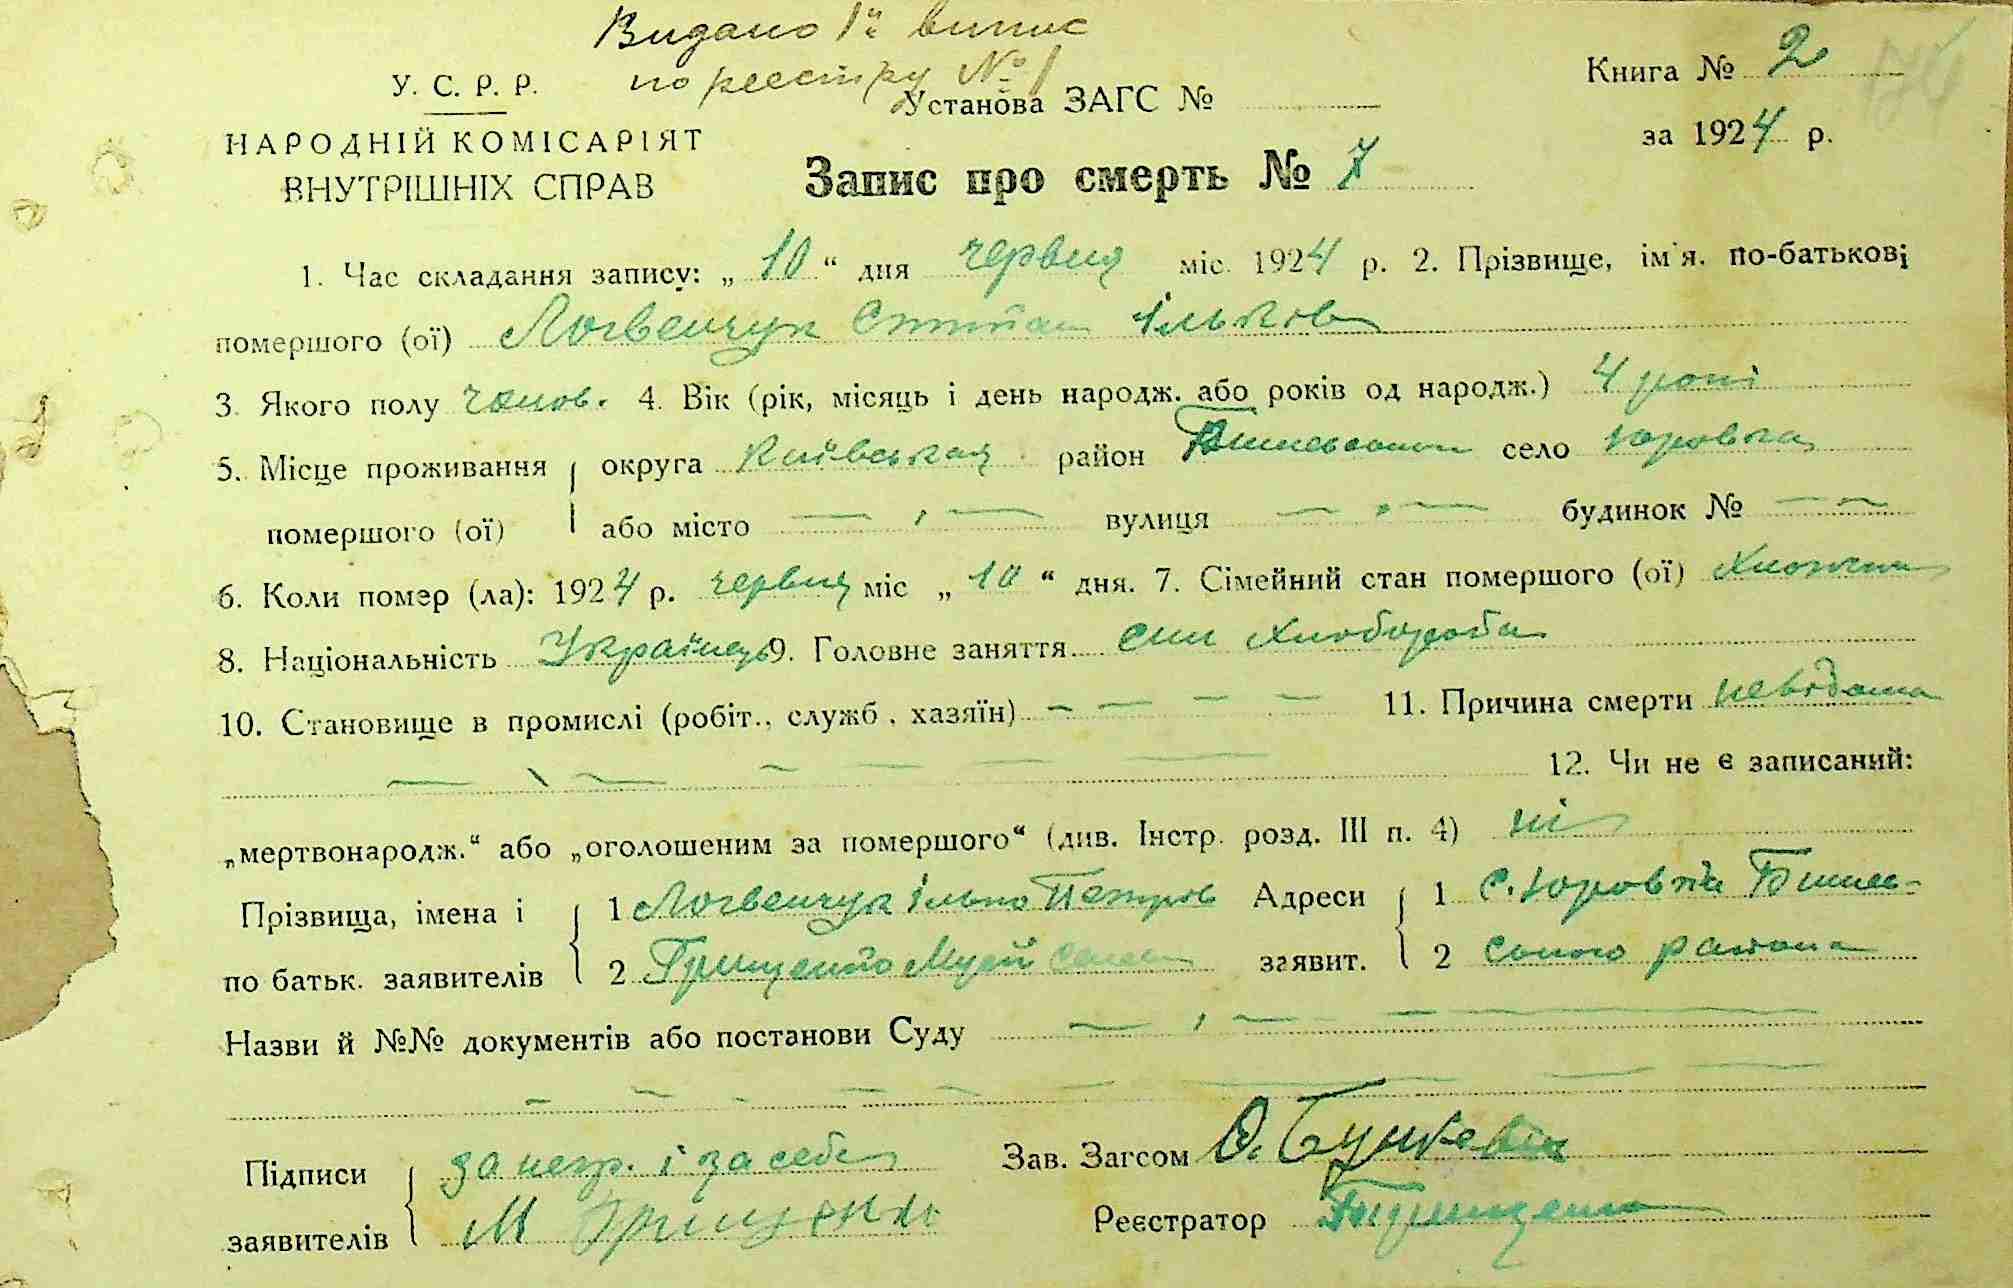 Видано 1й випис
по реестру № 1
У. С. Р. Р.
НАРОДНІЙ КОМІСАРІЯТ
ВНУТРІШНІХ СПРАВ
Установа ЗАГС №
Запис про смерть № 7
Книга № 2
за 1924 р.
1. Час складання запису: „ 10 “ дня червня міс. 1924 р. 2. Прізвище, ім'я, по-батькові
помершого (ої) Логвенчук Степан Ільков
3. Якого полу чолов. 4. Вік (рік, місяць і день народж. або років од народж.) 4 роки
5. Місце проживання округа Київська район село Юровка
помершого (ої) або місто вулиця будинок №
6. Коли помер (ла): 1924 р. червня міс „ 10 “ дня. 7. Сімейний стан помершого (ої)
8. Національність Українець 9. Головне заняття син хлибороба
10. Становище в промислі (робіт., служб., хазяїн) 11. Причина смерти невідома
12. Чи не є записаний:
„мертвонародж.“ або „оголошеним за помершого“ (див. Інстр. розд. III п. 4) ні
Прізвища, імена і 1 Логвенчук Ілько Петров Адреси 1 с. Юровка
по батьк. заявителів 2 Грищенко Мусій заявит. 2 района
Назви й №№ документів або постанови Суду
Підписи за негр. і за себе Зав. Загсом
заявителів М Грищенко Реєстратор